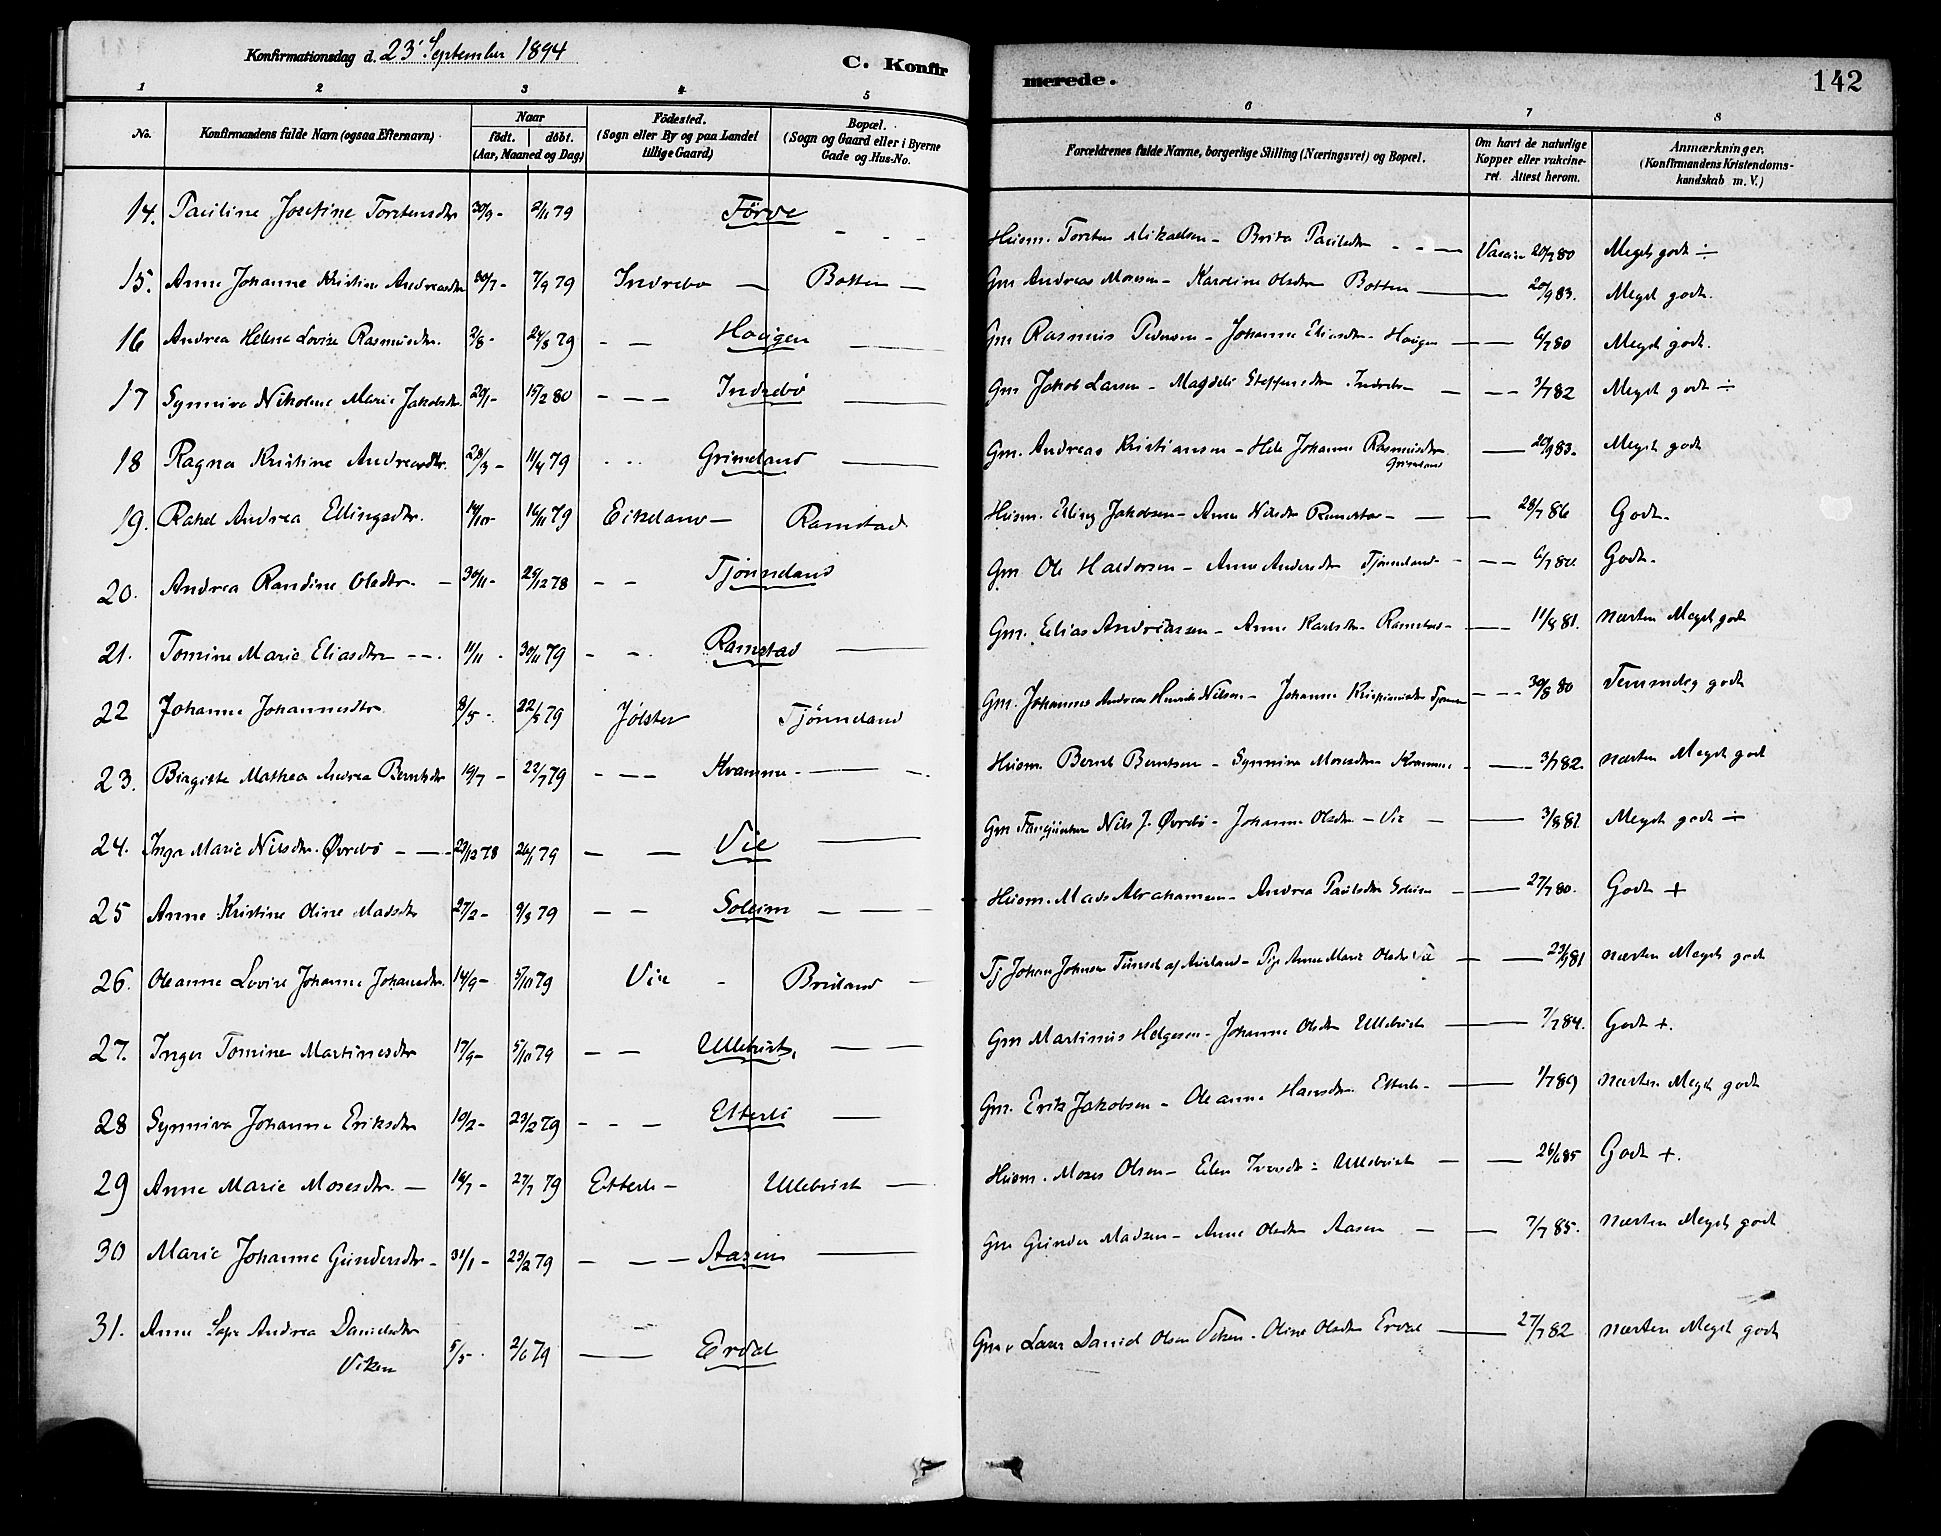 Konfirmationsdag d. 23' September 1894 C. Konfirmerede. 142
1 2 3 4 5 6 7 8
No. Konfirmandens fulde Navn (ogsaa Efternavn). Naar født. døbt. (Aar, Maaned og Dag) Fødested. (Sogn eller By og paa Landet tillige Gaard) Bopæl. (Sogn og Gaard eller i Byerne Gade og Hus-No. Forældrenes fulde Navne, borgerlige Stilling (Næringsvei) og Bopæl. Om havt de naturlige Kopper eller vakcineret. Attest herom. Anmærkninger. (Konfirmandens Kristendomskundskab m. V.)
14. Pauline Josefine Torstensdtr 30/9 - 2/11 79 Førde - - - Husm. Torsten Mikaelsen - Brita Paulsdtr - - — Vaccin 20/7 80 Meget godt ÷
15. Anne Johanne Kristine Andreasdtr 30/7 - 7/9 79 Indrebø — Botten — Gm Andreas Monsen - Karoline Olsdtr Botten — 20/9 83. Meget godt.
16 Andrea Helene Lovise Rasmusdtr. 2/8 - 24/8 79 - — Haugen — Gm Rasmus Pedersen - Johanne Eliasdtr - Haugen — 6/7 80 Meget godt.
17 Synniva Nikoline Marie Jakobsdtr. 20/1 - 15/2 80 - — — Indrebø — Gm Jakob Larsen - Magdeli Steffensdtr Indrebø — 3/7 82 Meget godt ÷
18 Ragna Kristine Andreasdtr. 28/3 - 11/4 79 - - Grimeland — Gm. Andreas Kristiansen - Hele Johanne Rasmusdtr Grimeland — 20/9 83. Meget godt
19. Rakel Andrea Ellingsdtr. 14/10 - 16/11 79 Eikeland — Ramstad Husm. Elling Jakobsen - Anne Nilsdtr Ramstad - — 28/7 86 Godt.
20. Andrea Randine Olsdtr. — 30/11 - 26/12 78 - - Tjønneland Gm Ole Haldorsen - Anne Andersdtr Tjønneland - — Godt.
21. Tomine Marie Eliasdtr - - . 11/11 - 30/11 79 - - Ramstad — Gm. Elias Andreassen - Anne Karlsdtr - Ramstad - — 11/8 81. næsten Meget godt
22 Johanne Johannesdtr 8/5 - 22/5 79 Jølster Tjønneland Gm. Johannes Andreas Henrik Nilsen - Johanne — 30/8 80 Temmelig godt
23. Birgitte Mathea Andrea Berntsdtr 19/7 - 22/7 79 - — — Kvamme - — Husm. Bernt Berntsen - Synniva Monsdtr - Kvamme - — 3/7 82. næsten Meget godt
24. Inga Marie Nilsdtr. Øvrebø — 29/12 78 26/1 79 — — Vie — Gm Nils J. Øvrebø - Johanne Olsdtr - Vie — 3/8 81 Meget godt ÷
25 Anne Kristine Oline Madsdtr 27/2 - 9/3 79 — — Soleim — — Husm. Mads Abrahamsen - Andrea Paulsdtr Soleim — 27/7 80. Godt +
26. Oleanne Lovise Johanne Johansdtr. 14/9 - 5/10 79 Vie - Bruland — Tj Johan Johnsen Tunsel af Aurland - Pige Anne Marie Olsdtr Vie — 23/9 81 næsten Meget godt
27. Inger Tomine Martinusdtr 17/9 - 5/10 79 — — Ullebust, — Gm Martinus Helgesen - Johanne Olsdtr Ullebust — 7/7 84. Godt +.
28 Synniva Johanne Eriksdtr 10/2 - 23/2 79 - — — Etterli — Gm. Erik Jakobsen - Oleanna Hansdtr. Etterli - — 1/7 89 næsten Meget godt
29 Anne Marie Mosesdtr. — 18/7 - 27/7 79 Etterli - Ullebust — Husm. Moses Olsen - Ellen Iversdtr Ullebust — 26/6 85 Godt +.
30 Marie Johanne Gundersdtr - 31/1 - 23/2 79 — — Aasen — Gm Gunder Madsen - Anne Olsdtr Aasen — 7/7 85. næsten Meget godt
31. Anne Andrea Danielsdtr Viken 5/5 - 2/6 79 — Erdal Gm. Lars Daniel Olsen Viken - Oline Olsdtr Erdal — 27/7 82 næsten Meget godt